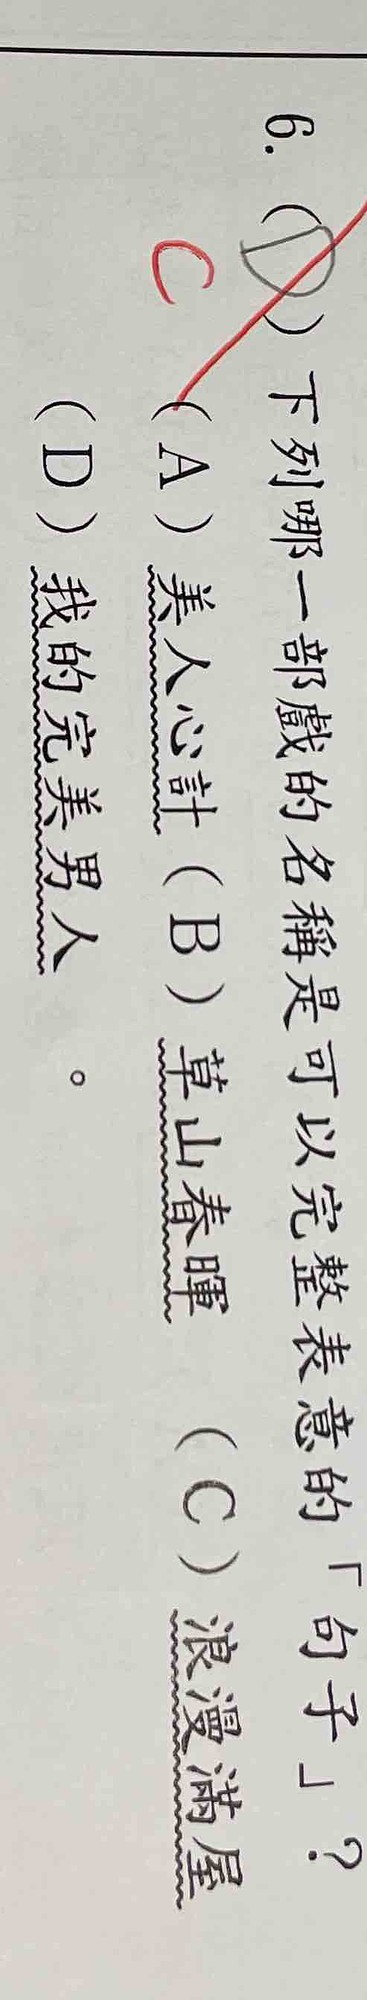 6.(D)下列哪一部戲的名稱是可以完整表意的「句子」?
C
(A)美人心計(B)草山春暉 (C)浪漫滿屋
(D)我的完美男人 。